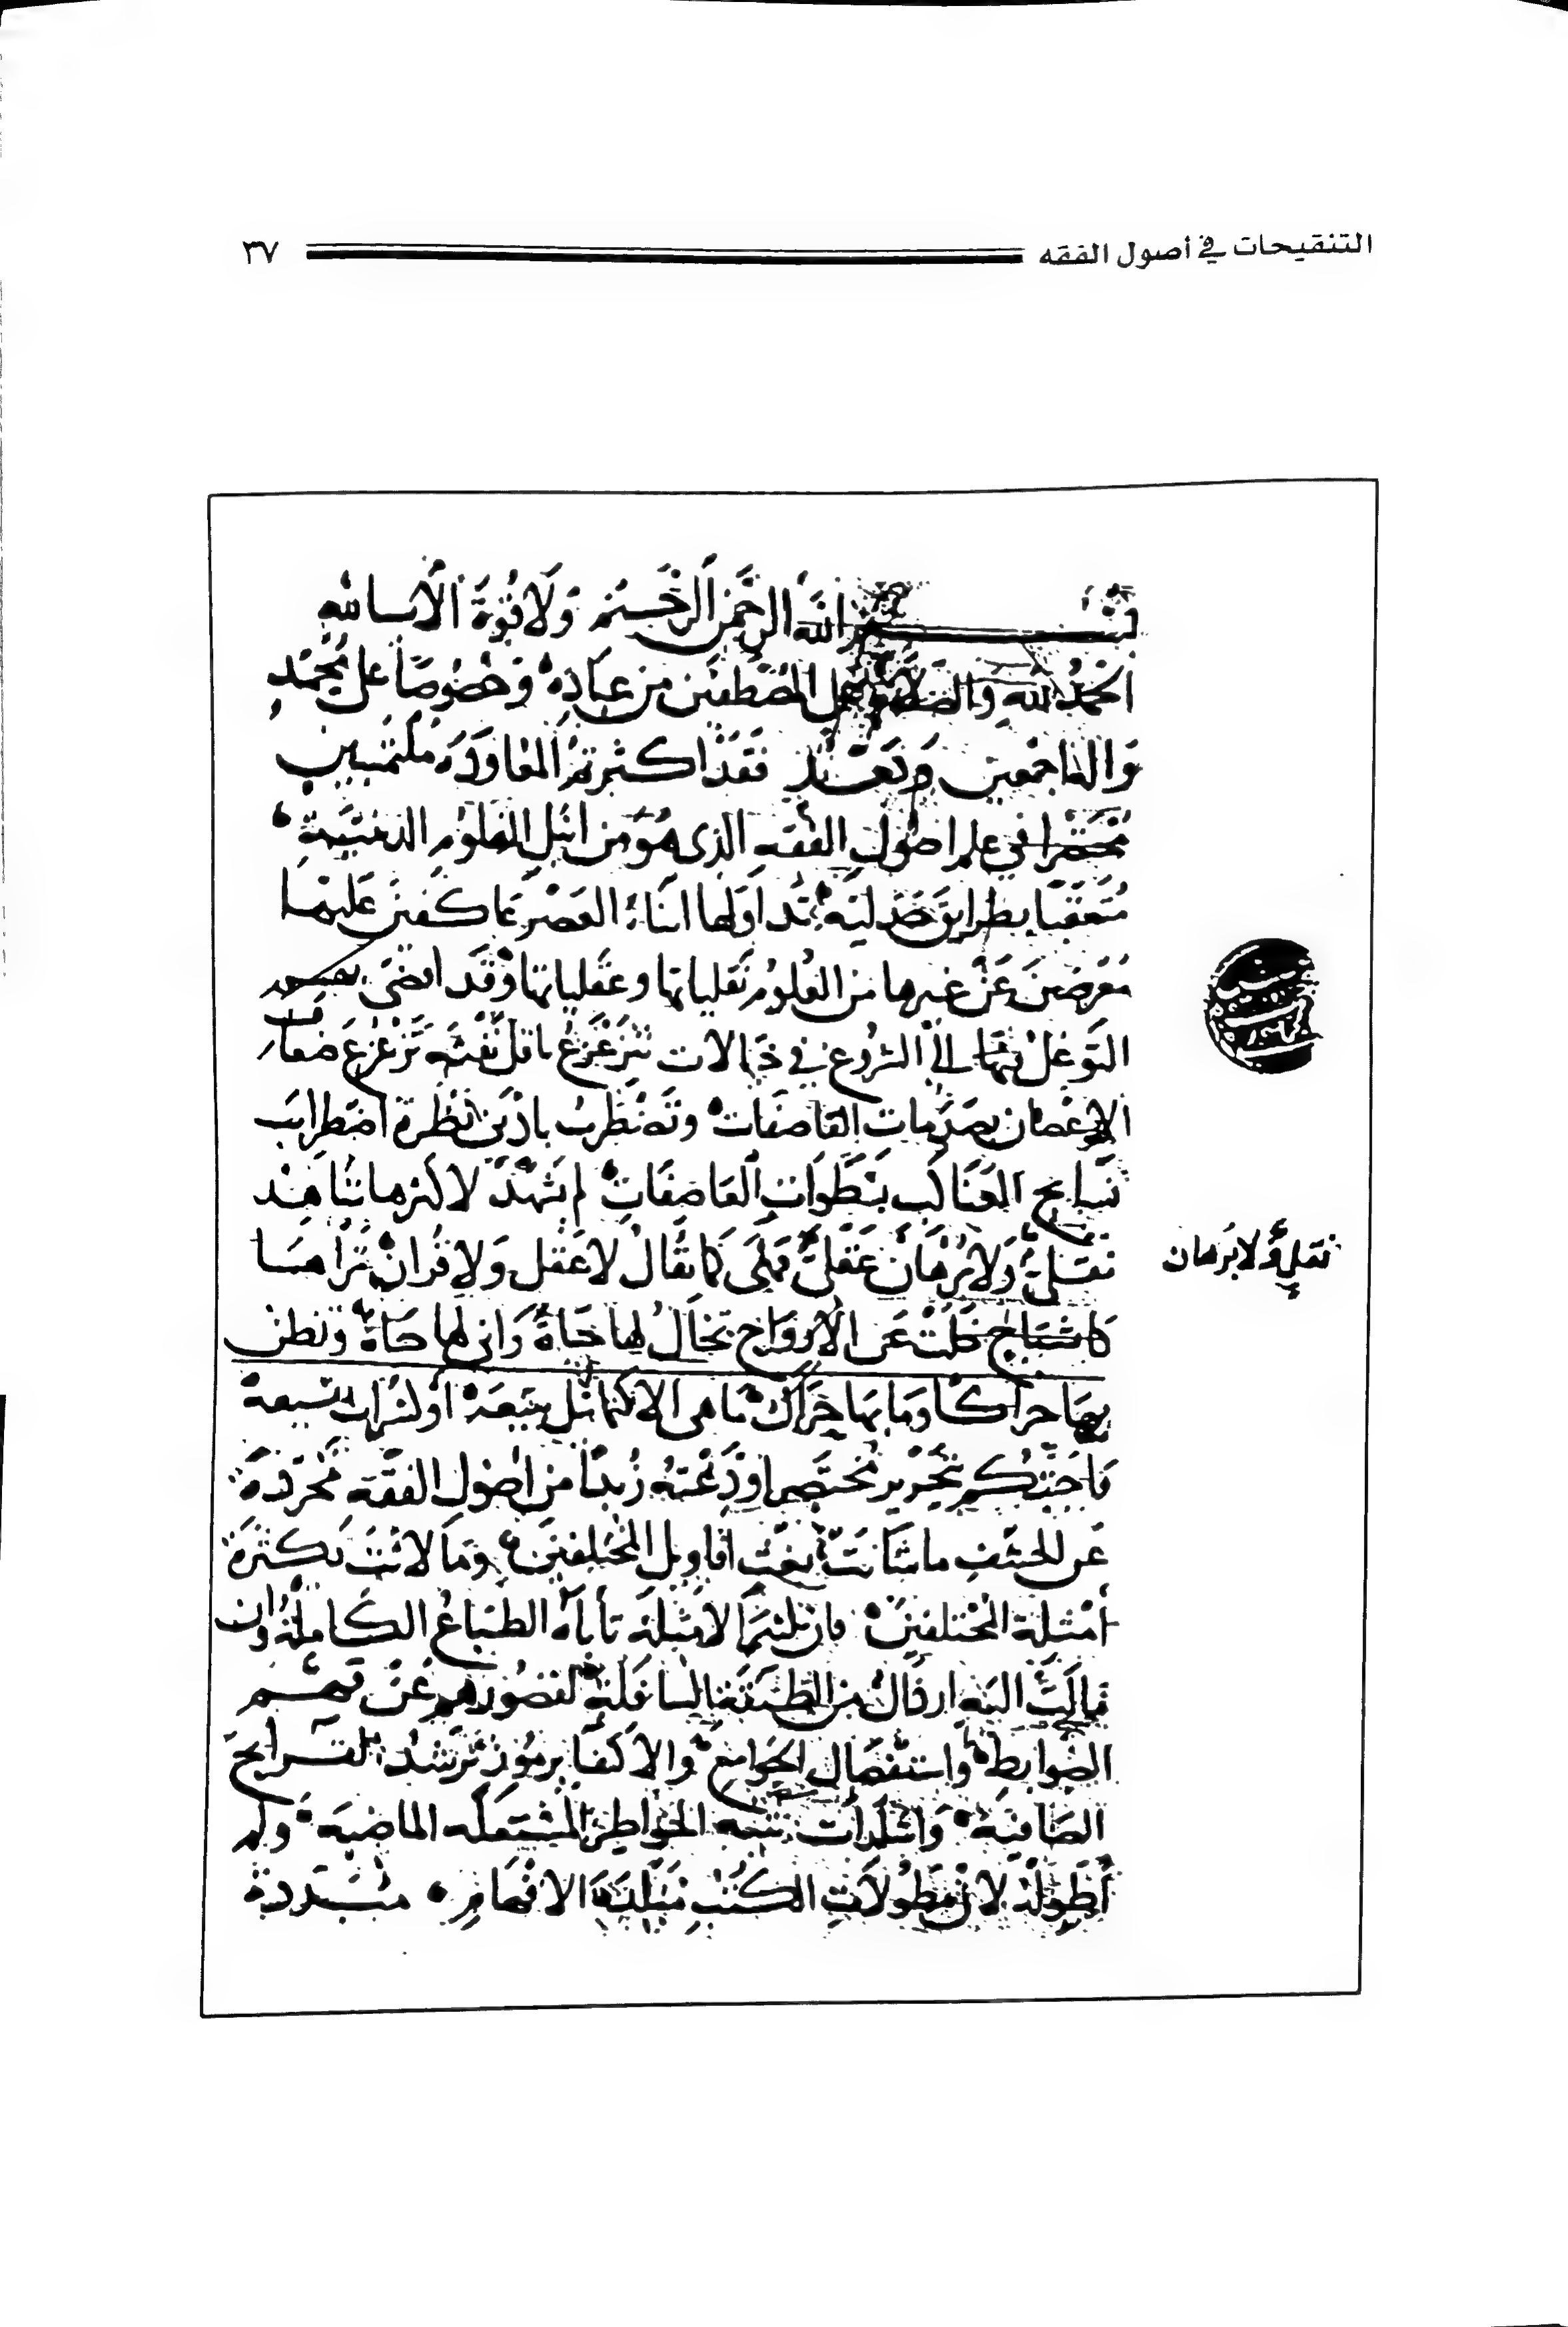 التنقيحات في أصول الفقه ٣٧
بسم الله الرحمن الرحيم ولا قوة الا بالله
الحمد لله والصلاة على المصطفين من عباده وخصوصا على محمد
واله اجمعين وبعد فقد اكثرتم المعاودة ملتمسين
مختصرا في علم اصول الفقه الذي هو من العلوم الدينية
بطرايق جدلية تداولها ابناء العصر عاكفين عليها
معرضين عن غيرها من العلوم نقلياتها وعقلياتها وقد افضى بهم
التوغل فيها الى الشروع في خيالات تتزعزع باقل نفثة تزعزع ضعاف
الاغصان بصدمات القاصفات وتضطرب بادنى نظرة اضطراب
نسايج العناكب بخطوات العاصفات لم تشهد لاكثرها
نقلي ولا برهان عقلي فهي كما يقال لا عقل ولا قران تراها
كاشباح خلت عن الارواح تخال لها حياة وانى لها حياة وتظن
بها حراكا وما بها حراك ما هي الا كسراب بقيعة
فاجبتكم بتحرير مختصر اودعته زبدا من اصول الفقه مجردة
عن الحشف ما شانته اقاويل المختلفين وما لانت بكثرة
امثلة المختلفين فان الامثلة تاباه الطباع الكاملة وان
مالت اليه من الطبقة السافلة لقصورهم عن فهم
الضوابط الجوامع والاكتفا برموز ترشد القرايح
الصافية واشارات تنبه الخواطر المشتعلة الماضية ولم
اطوله لان مطولات الكتب مبلدة الافهام مبددة
نقلي ولا برهان